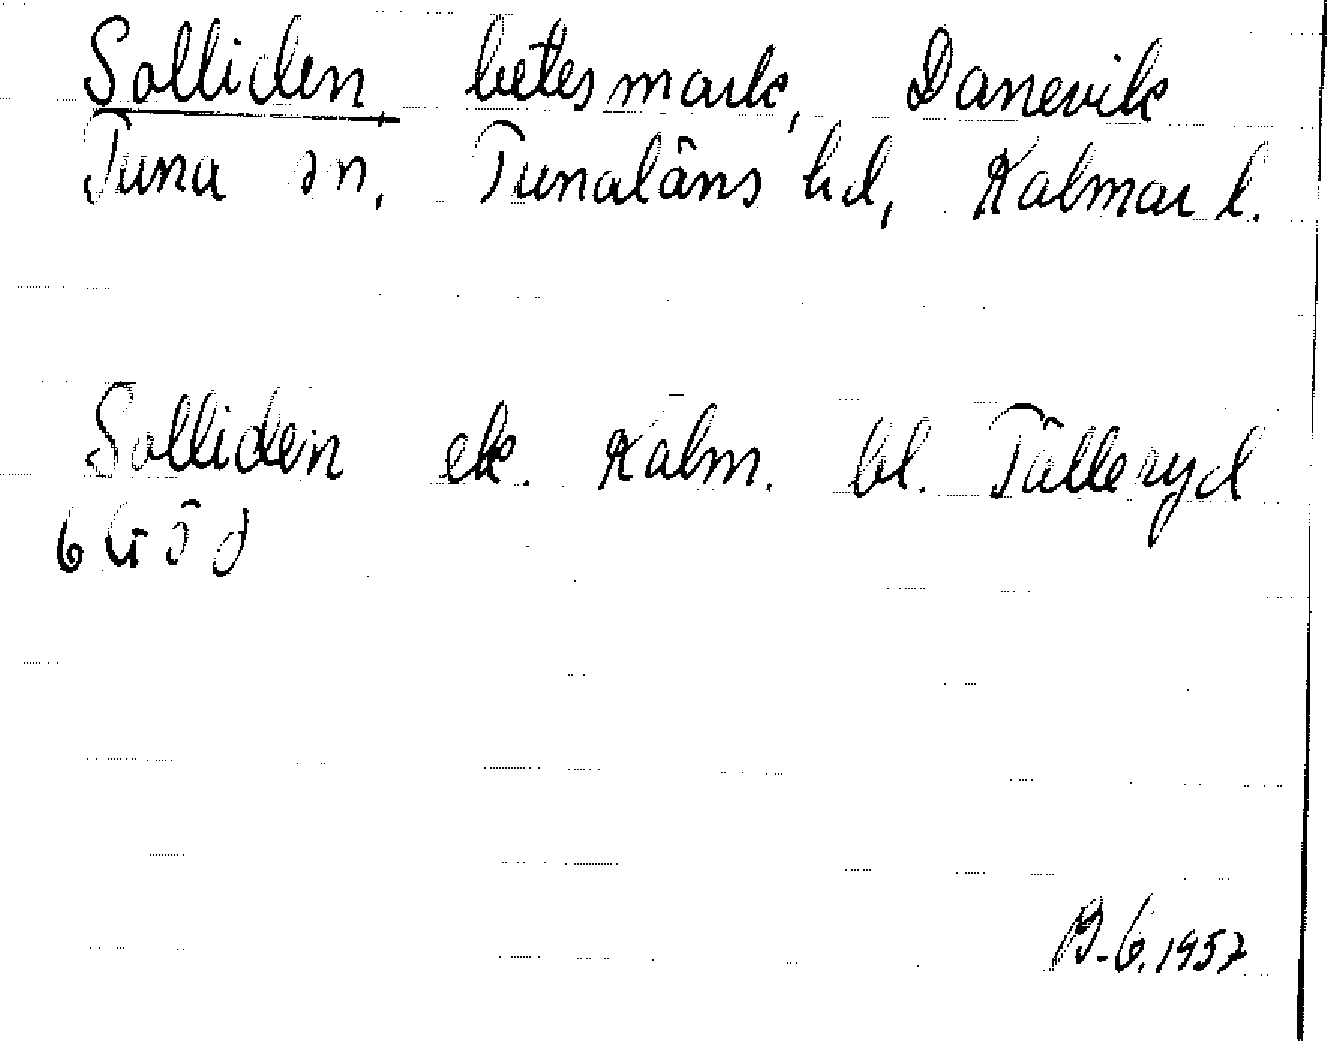 Solliden, betesmark, Danevik
Tuna sn, Tunaläns hd, Kalmar l.
Solliden ek. Kalm. bl. Tälleryd
6 G ö d
B-G. 1957